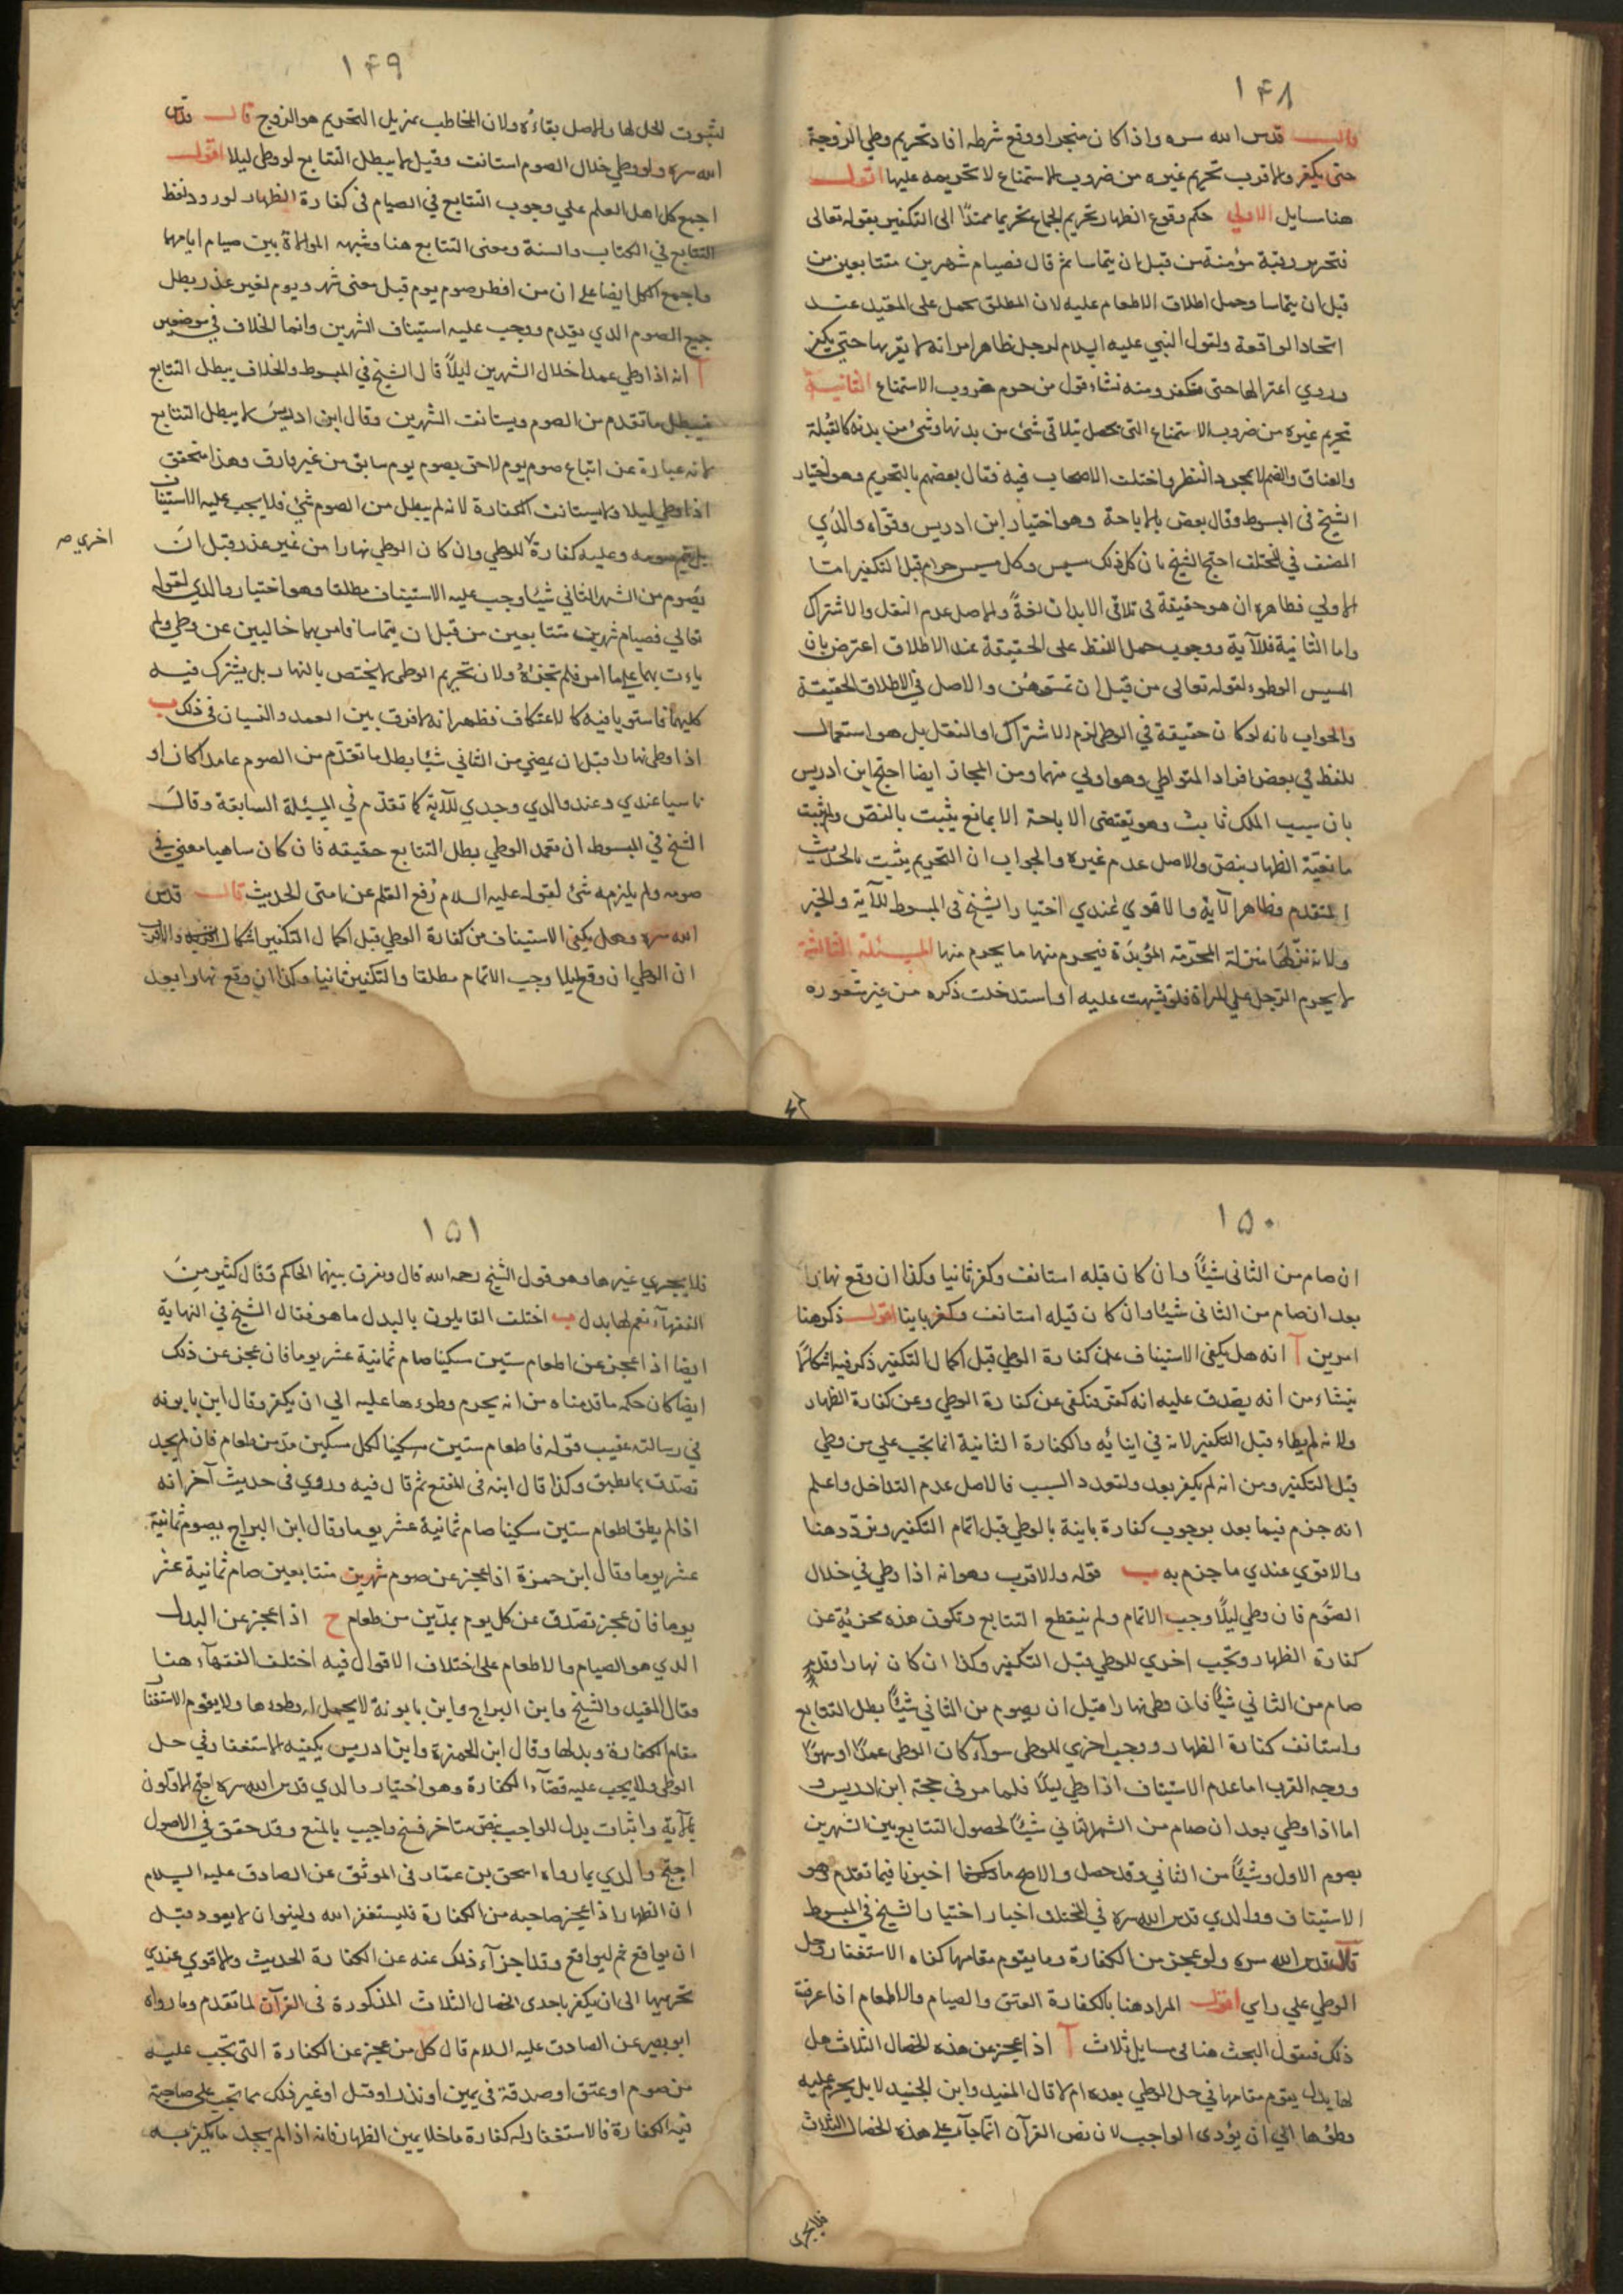 ١٤٨
قال قدس الله سره واذا كان منجزا او وقع شرطه افاد تحريم وطي الزوجة
حتى يكفر والاقرب تحريم غيره من ضروب الاستمتاع لا تحريمه عليها اقول
هنا مسايل الاولى حكم وقوع الظهار تحريم الجماع تحريما ممتدا الى التكفير بقوله تعالى
فتحرير رقبة مؤمنة من قبل ان يتماسا ثم قال فصيام شهرين متتابعين من
قبل ان يتماسا وحمل اطلاق الاطعام عليه لان المطلق يحمل على المقيد عند
اتحاد الواقعة ولقول النبي عليه السلام لرجل ظاهر امراته لا تقربها حتى تكفر
وروي اعتزالها حتى تكفر ومنه نشاء قول من حرم ضروب الاستمتاع الثانية
تحريم غيره من ضروب الاستمتاع التي تحصل بتلاقي شئ من بدنها وشئ من بدنه كالقبلة
والعناق والضم لا بمجرد النظر واختلف الاصحاب فيه فقال بعضهم بالتحريم وهو اختيار
الشيخ في المبسوط وقال بعض بالاباحة وهو اختيار ابن ادريس وقواه والدي
المصنف في المختلف احتج الشيخ بان كل ذلك مسيس وكل مسيس حرام قبل التكفير اما
الاولى فظاهره ان هو حقيقة في تلاقي الابدان لغة والاصل عدم النقل والاشتراك
واما الثانية فللآية ووجوب حمل اللفظ على الحقيقة عند الاطلاق اعترض بان
المسيس الوطوء لقوله تعالى من قبل ان تمسوهن والاصل في الاطلاق الحقيقة
والجواب بانه لو كان حقيقة في الوطي لزم الاشتراك او النقل بل هو استعمال
للفظ في بعض افراد المتواطي وهو اولى منهما ومن المجاز ايضا احتج ابن ادريس
بان سبب الملك ثابت وهو يقتضي الاباحة الا بمانع يثبت بالنص ولم يثبت
مانعية الظهار بنص والاصل عدم غيره والجواب ان التحريم يثبت بالحديث
المتقدم وظاهر الآية والاقوي عندي اختيار الشيخ في المبسوط للآية والخبر
ولانه نزلها منزلة المحرمة المؤبدة فيحرم منها ما يحرم منها المسئلة الثالثة
لا يحرم الرجل على المراة فلو تشبهت عليه او استدخلت ذكره من غير شعوره
١٤٩
لثبوت الحل لها والاصل بقاءه ولان المخاطب بمزيل التحريم هو الزوج قال قدس
الله سره ولو وطي خلال الصوم استانف وقيل لا يبطل التتابع لو وطي ليلا اقول
اجمع كل اهل العلم على وجوب التتابع في الصيام في كفارة الظهار لورود لفظ
التتابع في الكتاب والسنة ومعنى التتابع هنا وشبهه الموالاة بين صيام ايامهما
واجمع الكل ايضا على ان من افطر صوم يوم قبل مضي شهر ويوم لغير عذر بطل
جميع الصوم الذي يقدم ووجب عليه استيناف الشهرين وانما الخلاف في موضعين
آ انه اذا وطي عمدا خلال الشهرين ليلا قال الشيخ في المبسوط والخلاف يبطل التتابع
فيبطل ما تقدم من الصوم ويستانف الشهرين وقال ابن ادريس لا يبطل التتابع
لانه عبارة عن اتباع صوم يوم لاحق بصوم يوم سابق من غير فارق وهذا متحقق
اذا وطي ليلا ولا يستانف الكفارة لانه لم يبطل من الصوم شئ فلا يجب عليه الاستيناف
بل يتم صومه وعليه كفارة للوطي وان كان الوطي نهارا من غير عذر قبل ان
اخري صح
يصوم من الشهر الثاني شيئا وجب عليه الاستيناف مطلقا وهو اختيار والدي لقوله
تعالي فصيام شهرين متتابعين من قبل ان يتماسا فامر بهما خاليين عن وطي ولم
ياءت بهما على ما امر فلم تجزئه ولان تحريم الوطي لا يختص بالنهار بل يشترك فيه
كليهما فاستويا فيه كالاعتكاف فظهر انه لا فرق بين العمد والنسيان في ذلك ب
اذا وطي نهارا قبل ان يمضي من الثاني شيئا بطل ما تقدم من الصوم عامدا كان او
ناسيا عندي وعند والدي وجدي للآية كما تقدم في المسئلة السابقة وقال
الشيخ في المبسوط ان تعمد الوطي بطل التتابع حقيقه فان كان ساهيا مضى في
صومه ولم يلزمه شئ لقوله عليه السلام رفع القلم عن امتى الحديث قال قدس
الله سره وهل يكفي الاستيناف من كفارة الوطي قبل اكمال التكفير اشكال والاقرب
ان الوطي ان وقع ليلا وجب الاتمام مطلقا والتكفير ثانيا وكذا ان وقع نهارا بعد
١٥٠
ان صام من الثاني شيئا وان كان قبله استانف وكفر ثانيا وكذا ان وقع نهارا
بعد ان صام من الثاني شيئا وان كان قبله استانف وكفر ثانيا اقول ذكر هنا
امرين آ انه هل يكفي الاستيناف عن كفارة الوطي قبل اكمال التكفير ذكر فيه اشكالا
ينشاء من انه يصدق عليه انه كفر فتكفى عن كفارة الوطي وعن كفارة الظهار
ولانه لم يطاء قبل التكفير لانه في اثنائه والكفارة الثانية انما تجب على من وطي
قبل التكفير ومن انه لم يكفر بعد ولتعدد السبب فالاصل عدم التداخل واعلم
انه جزم فيما بعد بوجوب كفارة ثانية بالوطي قبل اتمام التكفير وتردد هنا
والاقوي عندي ما جزم به ب قوله والاقرب وهو انه اذا وطي في خلال
الصوم فان وطي ليلا وجب الاتمام ولم ينقطع التتابع وتكون هذه مجزئة عن
كفارة الظهار وتجب اخري للوطي قبل التكفير وكذا ان كان نهارا وقد
صام من الثاني شيئا فان وطي نهارا قبل ان يصوم من الثاني شيئا بطل التتابع
واستانف كفارة الظهار ووجب اخري للوطي سواء كان الوطي عمدا او سهوا
ووجه القرب اما عدم الاستيناف اذا وطي ليلا فلما مر في حجة ابن ادريس و
اما اذا وطي بعد ان صام من الشهر الثاني شيئا لحصول التتابع بين الشهرين
بصوم الاول وشيئا من الثاني وقد حصل والاصح ما اخبرنا فيما تقدم وهو
الاستيناف ووالدي قدس الله سره في المختلف اختار اختيار الشيخ في المبسوط
قال قدس الله سره ولو عجز من الكفارة وما يقوم مقامها كفاه الاستغفار وحل
الوطي على راي اقول المراد هنا بالكفارة العتق والصيام والاطعام اذا عرفت
ذلك فنقول البحث هنا في مسايل ثلاث آ اذا عجز عن هذه الخصال الثلاث هل
لها بدل يقوم مقامها في حل الوطي بعده ام لا قال المفيد وابن الجنيد لا بل يحرم عليه
وطؤها الى ان يؤدى الواجب لان نص القرآن انما جاء على هذه الخصال الثلاث
فلا يجزى
١٥١
فلا يجزي غيرها وهو قول الشيخ رحمه الله قال ويفرق بينهما الحاكم وقال كثير من
الفقهاء نعم لها بدل ب اختلف القايلون بالبدل ما هو فقال الشيخ في النهاية
ايضا اذا عجز عن اطعام ستين مسكينا صام ثمانية عشر يوما فان عجز عن ذلك
ايضا كان حكمه ما قدمناه من انه يحرم وطوءها عليه الى ان يكفر وقال ابن بابويه
في رسالته عقيب قوله فاطعام ستين مسكينا لكل مسكين مد من طعام فان لم يجد
تصدق بما يطيق وكذا قال ابنه في المقنع ثم قال فيه وروي في حديث آخر انه
اذا لم يطق اطعام ستين مسكينا صام ثمانية عشر يوما وقال ابن البراج يصوم ثمانية
عشر يوما وقال ابن حمزة اذا عجز عن صوم شهرين متتابعين صام ثمانية عشر
يوما فان عجز تصدق عن كل يوم بمدين من طعام ج اذا عجز عن البدل
الذي هو الصيام والاطعام على اختلاف الاقوال فيه اختلف الفقهاء هنا
وقال المفيد والشيخ وابن البراج وابن بابويه لا يحل له وطوءها ولا يقوم الاستغفار
مقام الكفارة وبدلها وقال ابن الحمزة وابن ادريس يكفيه الاستغفار في حل
الوطي ولا يجب عليه قضاء الكفارة وهو اختيار والدي قدس الله سره احتج الاولون
بالآية واثبات بدل للواجب بنص متاخر فسخ واجيب بالمنع وقد حقق في الاصول
احتج والدي بما رواه اسحق بن عمار في الموثق عن الصادق عليه السلام
ان الظهار اذا عجز صاحبه من الكفارة فليستغفر الله ولينو ان لا يعود قبل
ان يواقع ثم ليواقع وقد اجزاء ذلك عنه عن الكفارة الحديث والاقوي عندي
تحريمها الى ان يكفر باحدى الخصال الثلاث المذكورة في القرآن لما تقدم وما رواه
ابو بصير عن الصادق عليه السلام قال كل من عجز عن الكفارة التي تجب عليه
من صوم او عتق او صدقة في يمين او نذر او قتل او غير ذلك مما تجب على صاحبه
فيه الكفارة فالاستغفار له كفارة ما خلا يمين الظهار فانه اذا لم يجد ما يكفر به